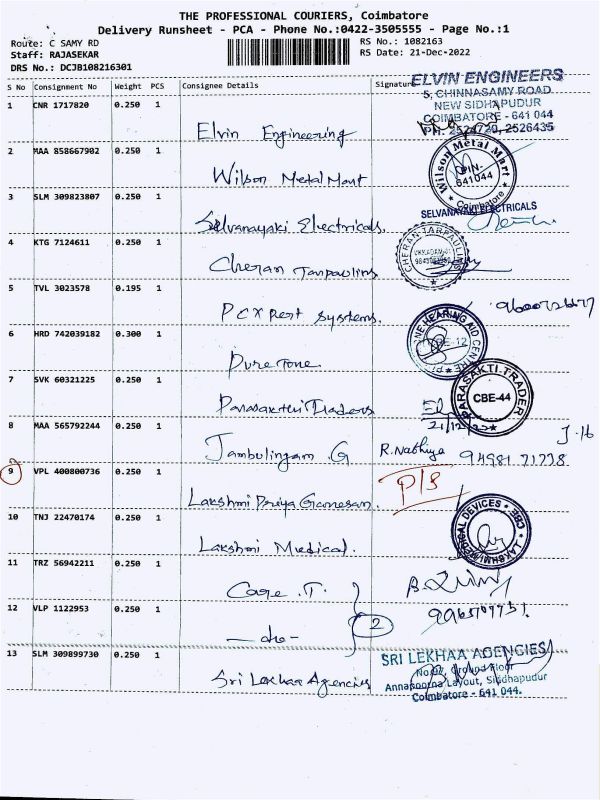 THE PROFESSIONAL COURIERS, Coimbatore
Delivery Runsheet - PCA - Phone No.:0422-3505555 - Page No.:1
Route: C SAMY RD
Staff: RAJASEKAR
DRS No.: DCJB108216301
RS No.: 1082163
RS Date: 21-Dec-2022
S No Consignment No Weight PCS Consignee Details Signature
1 CNR 1717820 0.250 1 Elvin Engineering
ELVIN ENGINEERS
5, CHINNASAMY ROAD
NEW SIDHAPUDUR
COIMBATORE - 641 044
PH: 2524720, 2526435
2 MAA 858667902 0.250 1 Wilson Metal Mart
Wilson Metal Mart
PIN-
641044
Coimbatore
3 SLM 309823807 0.250 1 Selvanayaki Electricals.
SELVANAYAKI ELECTRICALS
4 KTG 7124611 0.250 1 Cheran Tarpaulins
CHERAN TARPAULINS
5 TVL 3023578 0.195 1 PCXpert Systems.
6 HRD 742039182 0.300 1 Pure tone
HEARING AID CENTRE
7 SVK 60321225 0.250 1 Parasakthi Traders
PARASAKTI-TRADER
CBE-44
8 MAA 565792244 0.250 1 Jambulingam G R.Nathiya
9 VPL 400800736 0.250 1 Lakshmi Priya Ganesan. P/S
10 TNJ 22470174 0.250 1 Lakshmi Medical.
LAKSHMI MEDICAL DEVICES CBE
11 TRZ 56942211 0.250 1 Care .T.
12 VLP 1122953 0.250 1 —do— 2
13 SLM 309899730 0.250 1 Sri Lekhaa Agencies
SRI LEKHAA AGENCIES
Ground Floor
Annapoorna Layout, Siddhapudur
Coimbatore - 641 044.